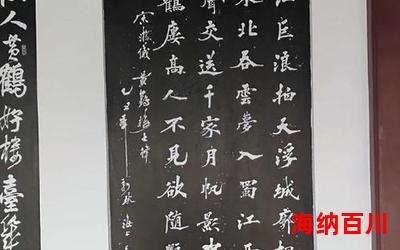 江巨浪拍天浮城郭相
水北吞雲夢入蜀江
聲交送千家月帆影
鶴廔高人不見欲隨
宋游儀黄鶴樓
人黄鶴好樓臺
海纳百川